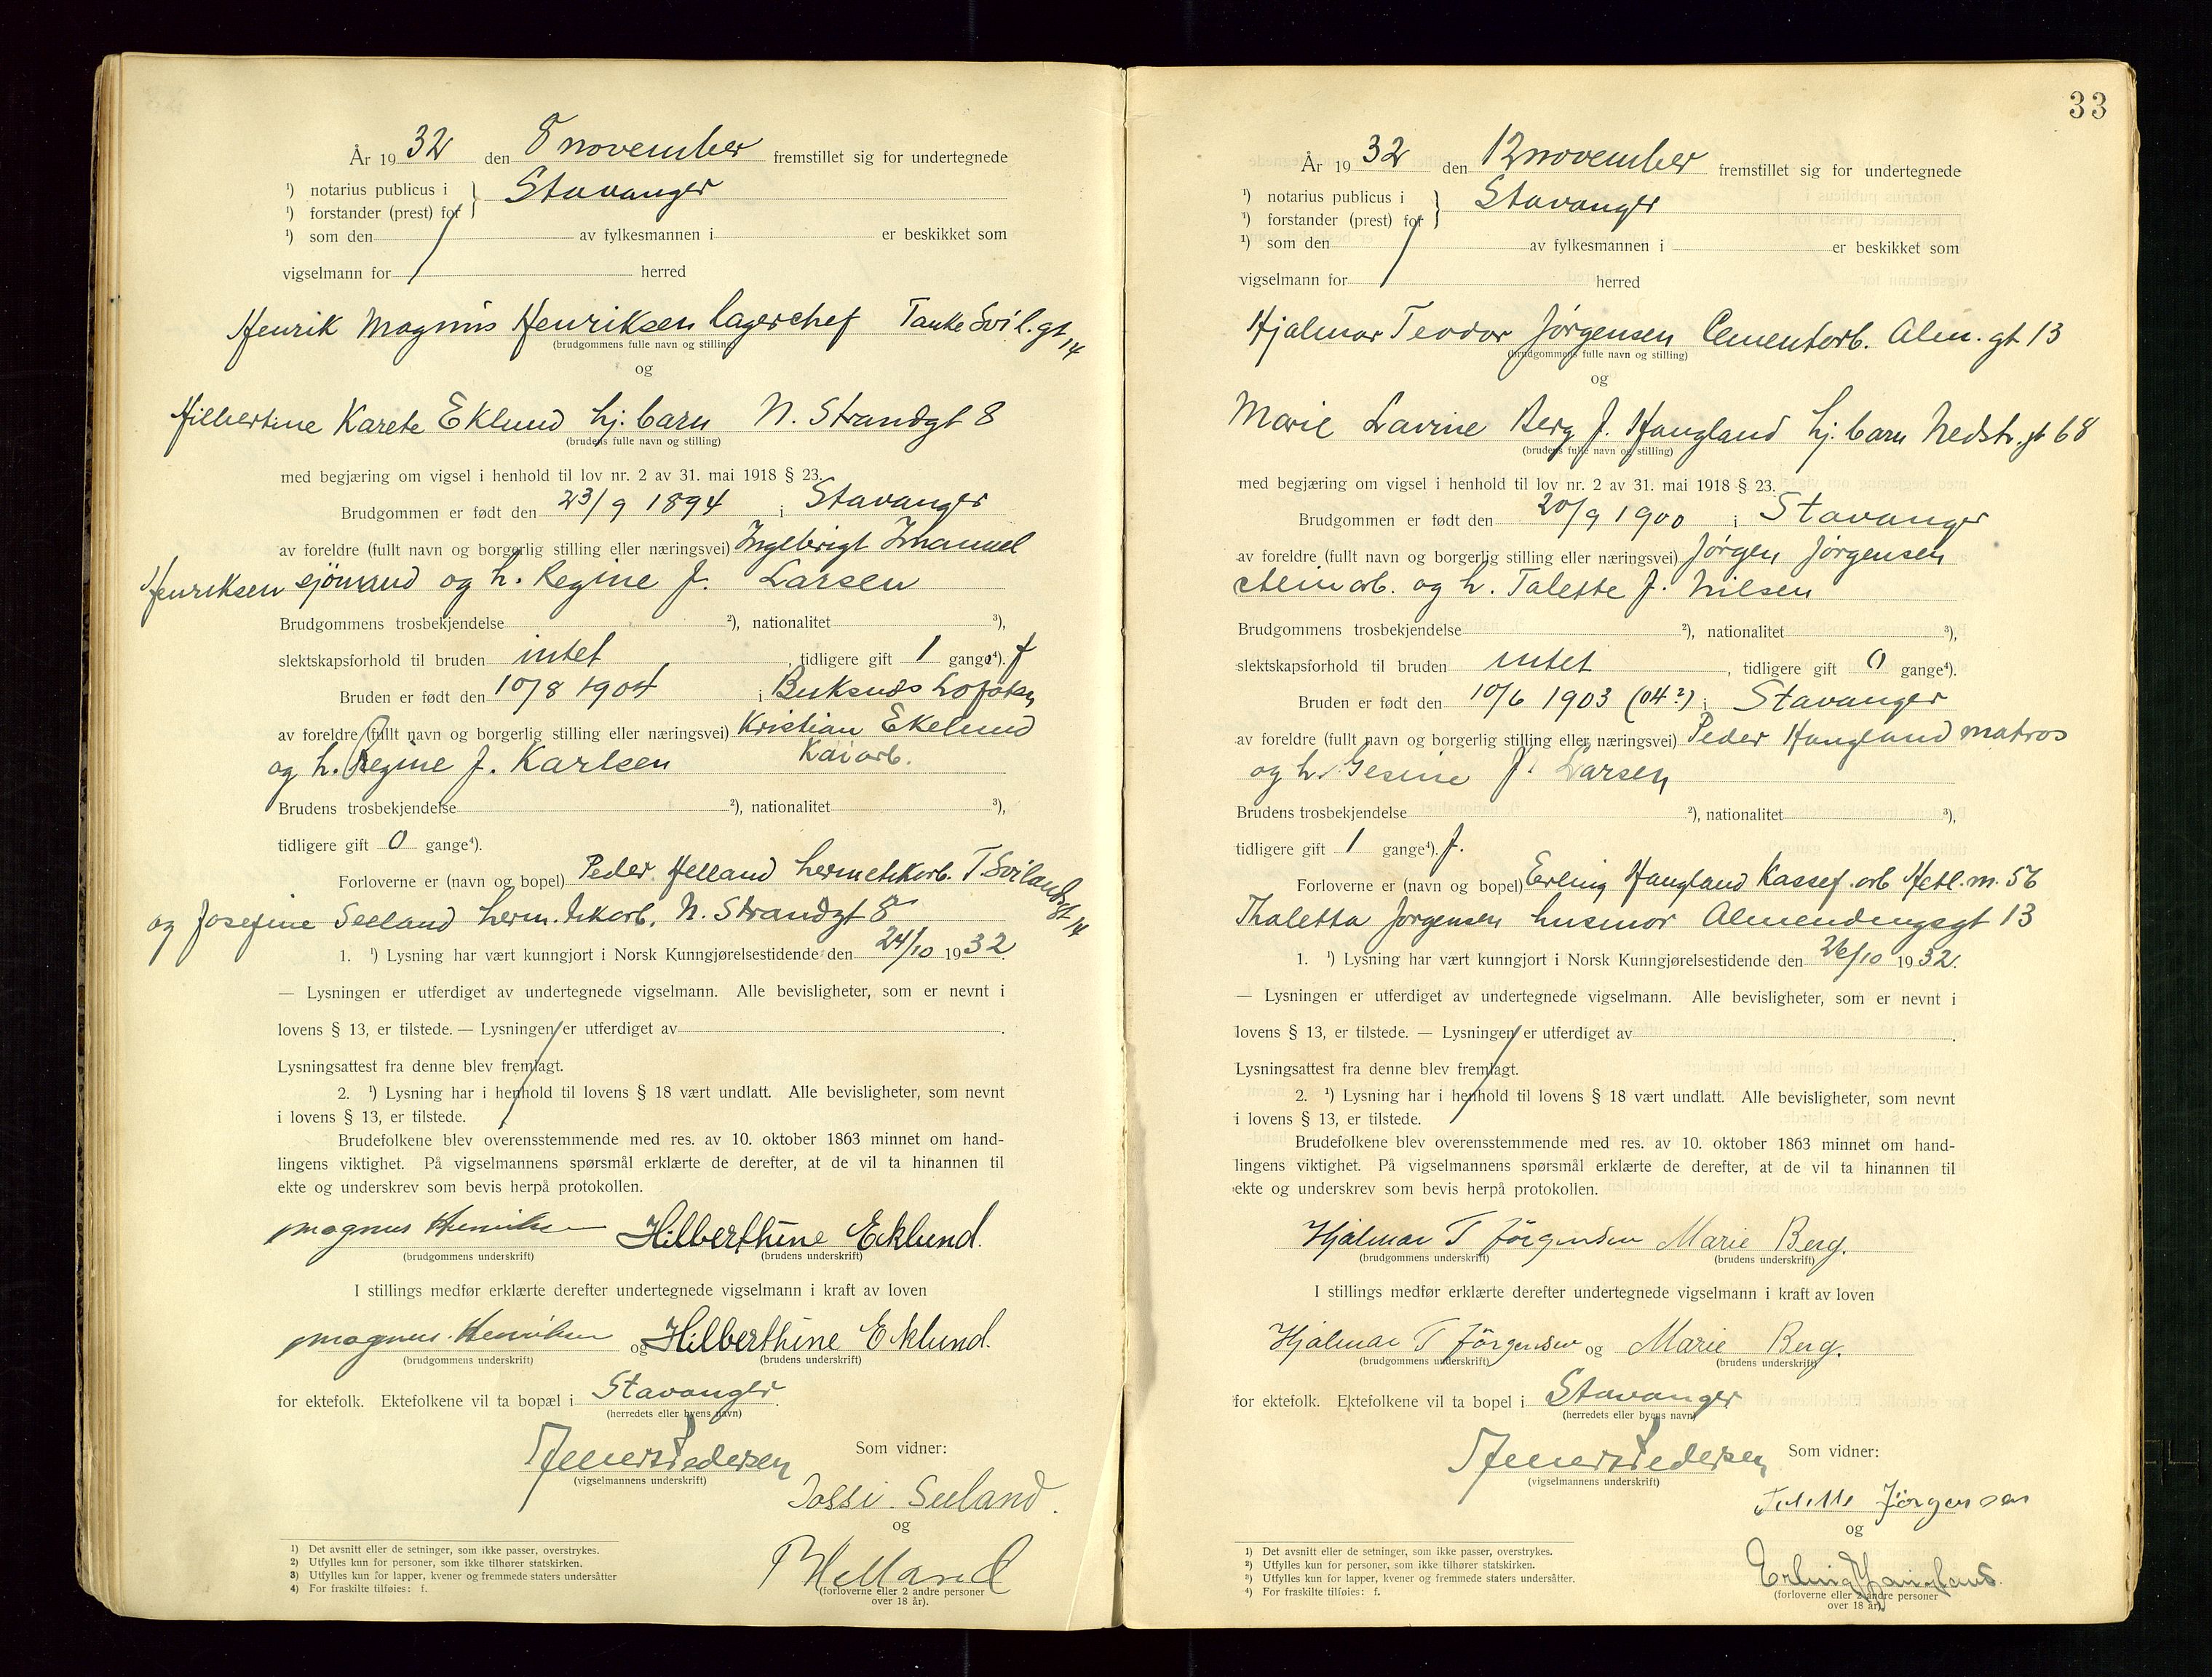 År 1932 den 8 november fremstillet sig for undertegnede
¹) notarius publicus i } Stavanger
¹) forstander (prest) for
¹) som den av fylkesmannen i er beskikket som
vigselmann for herred
Henrik Magnus Henriksen lagerchef Tanke Svil.gt 14
(brudgommens fulle navn og stilling)
og
Hilbertine Karete Eklund hj. barn N. Strandgt 8
(brudens fulle navn og stilling)
med begjæring om vigsel i henhold til lov nr. 2 av 31. mai 1918 § 23.
Brudgommen er født den 23/9 1894 i Stavanger
av foreldre (fullt navn og borgerlig stilling eller næringsvei) Ingebrigt Imanuel
Henriksen sjömand og h. Regine f. Larsen
Brudgommens trosbekjendelse ²), nationalitet ³),
slektskapsforhold til bruden intet, tidligere gift 1 gange⁴). f
Bruden er født den 10/8 1904 i Buksnæs Lofoten
av foreldre (fullt navn og borgerlig stilling eller næringsvei) Kristian Ekelund
og h. Regine f. Karlsen Kaiarb.
Brudens trosbekjendelse ²), nationalitet ³),
tidligere gift 0 gange⁴).
Forloverne er (navn og bopel) Peder Helland hermetikkarb. T. Svilandsgt 14
og Josefine Seeland herm.tikarb. N. Strandgt 8
1. ¹) Lysning har vært kunngjort i Norsk Kunngjørelsestidende den 24/10 1932.
— Lysningen er utferdiget av undertegnede vigselmann. Alle bevisligheter, som er nevnt i
lovens § 13, er tilstede. — Lysningen er utferdiget av .
Lysningsattest fra denne blev fremlagt.
2. ¹) Lysning har i henhold til lovens § 18 vært undlatt. Alle bevisligheter, som nevnt
i lovens § 13, er tilstede.
Brudefolkene blev overensstemmende med res. av 10. oktober 1863 minnet om hand-
lingens viktighet. På vigselmannens spørsmål erklærte de derefter, at de vil ta hinannen til
ekte og underskrev som bevis herpå protokollen.
Magnus Henriksen Hilberthine Ecklund.
(brudgommens underskrift) (brudens underskrift)
I stillings medfør erklærte derefter undertegnede vigselmann i kraft av loven
Magnus Henriksen og Hilberthine Ecklund.
(brudgommens underskrift) (brudens underskrift)
for ektefolk. Ektefolkene vil ta bopæl i Stavanger.
(herredets eller byens navn)
Pedersen Som vidner:
(vigselmannens underskrift)
Jossi Seeland.
og
P Helland
(forloverne eller 2 andre personer
over 18 år).
1) Det avsnitt eller de setninger, som ikke passer, overstrykes.
2) Utfylles kun for personer, som ikke tilhører statskirken.
3) Utfylles kun for lapper, kvener og fremmede staters undersåtter
4) For fraskilte tilføies: f.
33
År 1932 den 12 november fremstillet sig for undertegnede
¹) notarius publicus i } Stavanger
¹) forstander (prest) for
¹) som den av fylkesmannen i er beskikket som
vigselmann for herred
Hjalmar Teodor Jørgensen Cementarb. Alm. gt 13
(brudgommens fulle navn og stilling)
og
Marie Lavine Berg f. Haugland hj. barn Nedstr.gt 68
(brudens fulle navn og stilling)
med begjæring om vigsel i henhold til lov nr. 2 av 31. mai 1918 § 23.
Brudgommen er født den 20/9 1900 i Stavanger
av foreldre (fullt navn og borgerlig stilling eller næringsvei) Jørgen Jørgensen
arb. og h. Talette f. Nilsen
Brudgommens trosbekjendelse ²), nationalitet ³),
slektskapsforhold til bruden intet, tidligere gift 0 gange⁴).
Bruden er født den 10/6 1903 (04?) i Stavanger
av foreldre (fullt navn og borgerlig stilling eller næringsvei) Peder Haugland matros
og h. Gesine f. Larsen
Brudens trosbekjendelse ²), nationalitet ³),
tidligere gift 1 gange⁴). f.
Forloverne er (navn og bopel) Erling Haugland Kassef.arb Hetl.m. 56
Thaletta Jørgensen husmor Almendingsgt 13
1. ¹) Lysning har vært kunngjort i Norsk Kunngjørelsestidende den 26/10 1932.
— Lysningen er utferdiget av undertegnede vigselmann. Alle bevisligheter, som er nevnt i
lovens § 13, er tilstede. — Lysningen er utferdiget av .
Lysningsattest fra denne blev fremlagt.
2. ¹) Lysning har i henhold til lovens § 18 vært undlatt. Alle bevisligheter, som nevnt
i lovens § 13, er tilstede.
Brudefolkene blev overensstemmende med res. av 10. oktober 1863 minnet om hand-
lingens viktighet. På vigselmannens spørsmål erklærte de derefter, at de vil ta hinannen til
ekte og underskrev som bevis herpå protokollen.
Hjalmar T Jörgensen Marie Berg.
(brudgommens underskrift) (brudens underskrift)
I stillings medfør erklærte derefter undertegnede vigselmann i kraft av loven
Hjalmar T Jörgensen og Marie Berg.
(brudgommens underskrift) (brudens underskrift)
for ektefolk. Ektefolkene vil ta bopel i Stavanger
(herredets eller byens navn)
Pedersen Som vidner:
(vigselmannens underskrift)
Jörgensen
og
Erling Haugland.
(forloverne eller 2 andre personer
over 18 år).
1) Det avsnitt eller de setninger, som ikke passer, overstrykes.
2) Utfylles kun for personer, som ikke tilhører statskirken.
3) Utfylles kun for lapper, kvener og fremmede staters undersåtter.
4) For fraskilte tilføies: f.